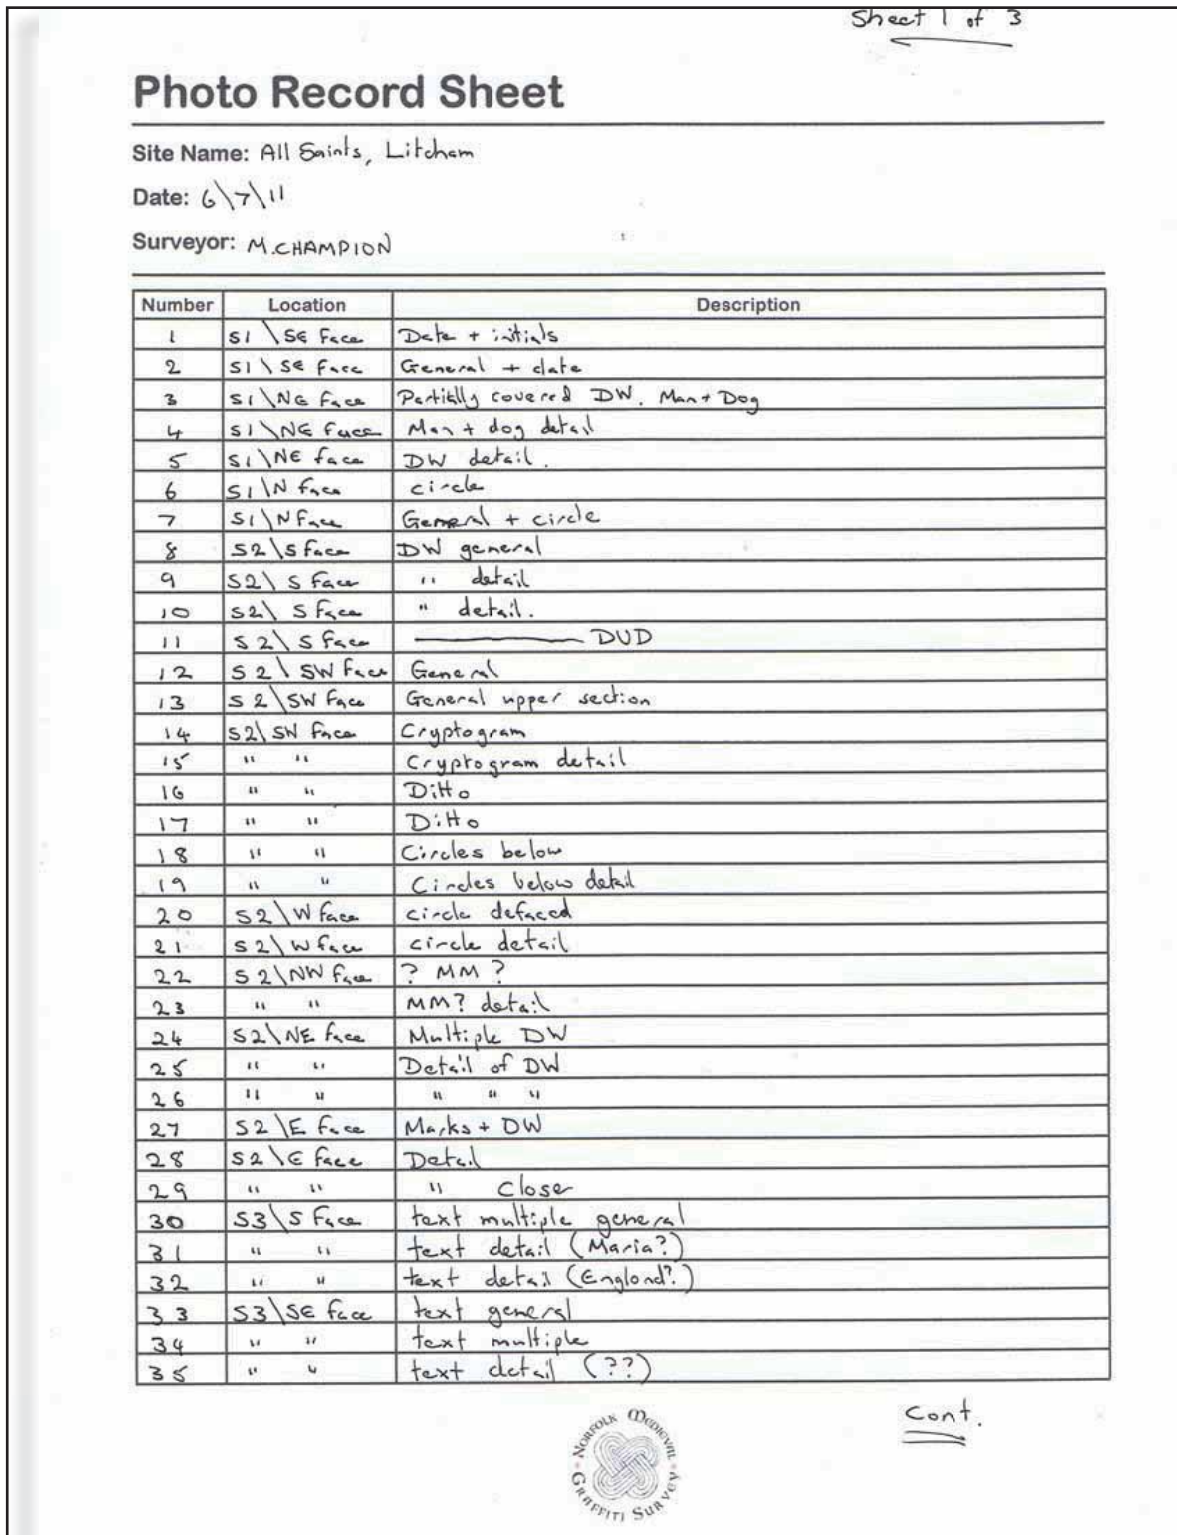 Sheet 1 of 3
Photo Record Sheet
Site Name: All Saints, Litcham
Date: 6\7\11
Surveyor: M.CHAMPION
Number Location Description
1 S1 \ SE Face Date + initials
2 S1 \ SE Face General + date
3 S1 \ NE Face Partially covered DW. Man + Dog
4 S1 \ NE Face Man + dog detail
5 S1 \ NE face DW detail.
6 S1 \ N face circle
7 S1 \ N Face General + circle
8 S2 \ S face DW general
9 S2 \ S Face " detail
10 S2 \ S Face " detail.
11 S2 \ S Face ——— DUD
12 S2 \ SW Face General
13 S2 \ SW Face General upper section
14 S2 \ SW Face Cryptogram
15 " " Cryptogram detail
16 " " Ditto
17 " " Ditto
18 " " Circles below
19 " " Circles below detail
20 S2 \ W face circle defaced
21 S2 \ W face circle detail
22 S2 \ NW Face ? MM ?
23 " " MM? detail
24 S2 \ NE face Multiple DW
25 " " Detail of DW
26 " " " " "
27 S2 \ E face Marks + DW
28 S2 \ E face Detail
29 " " " Closer
30 S3 \ S Face text multiple general
31 " " text detail (Maria?)
32 " " text detail (Englond?)
33 S3 \ SE face text general
34 " " text multiple
35 " " text detail (??)
Cont.
NORFOLK MEDIEVAL GRAFFITI SURVEY